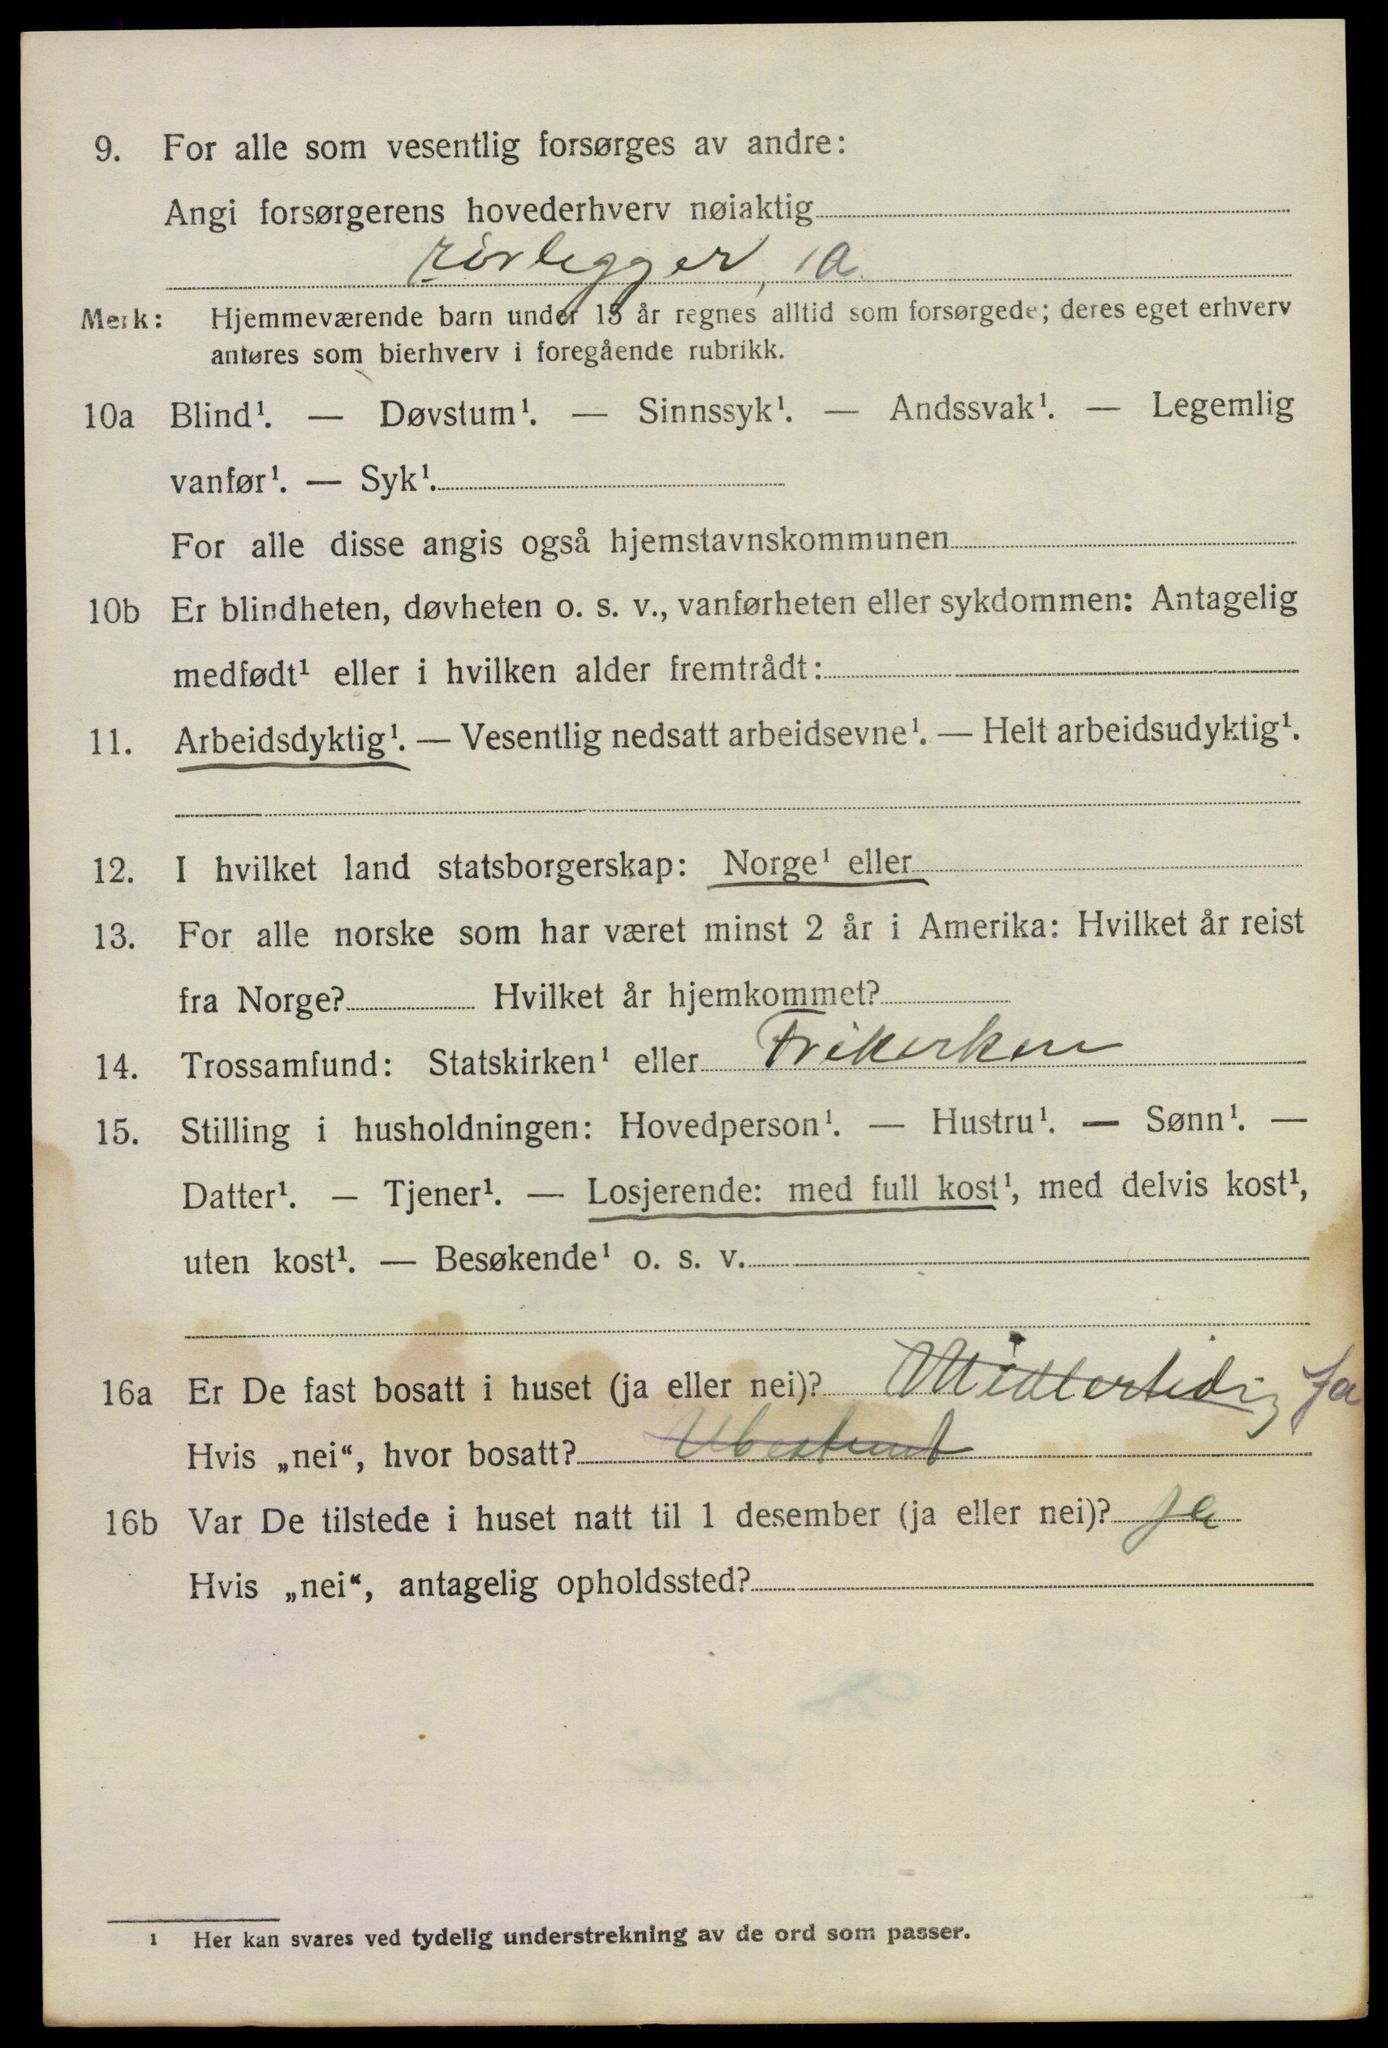 9. For alle som vesentlig forsørges av andre:
Angi forsørgerens hovederhverv nøiaktig
rørlegger, 1a
Merk: Hjemmeværende barn under 15 år regnes alltid som forsørgede; deres eget erhverv
anføres som bierhverv i foregående rubrikk.
10a Blind¹. — Døvstum¹. — Sinnssyk¹. — Andssvak¹. — Legemlig
vanfør¹. — Syk¹.
For alle disse angis også hjemstavnskommunen
10b Er blindheten, døvheten o. s. v., vanførheten eller sykdommen: Antagelig
medfødt¹ eller i hvilken alder fremtrådt:
11. Arbeidsdyktig¹. — Vesentlig nedsatt arbeidsevne¹. — Helt arbeidsudyktig¹.
12. I hvilket land statsborgerskap: Norge¹ eller
13. For alle norske som har været minst 2 år i Amerika: Hvilket år reist
fra Norge? Hvilket år hjemkommet?
14. Trossamfund: Statskirken¹ eller Frikirken
15. Stilling i husholdningen: Hovedperson¹. — Hustru¹. — Sønn¹. —
Datter¹. — Tjener¹. — Losjerende: med full kost¹, med delvis kost¹,
uten kost¹. — Besøkende¹ o. s. v.
16a Er De fast bosatt i huset (ja eller nei)? Midlertidig ja
Hvis „nei“, hvor bosatt? Ubestemt
16b Var De tilstede i huset natt til 1 desember (ja eller nei)? ja
Hvis „nei“, antagelig opholdssted?
1 Her kan svares ved tydelig understrekning av de ord som passer.